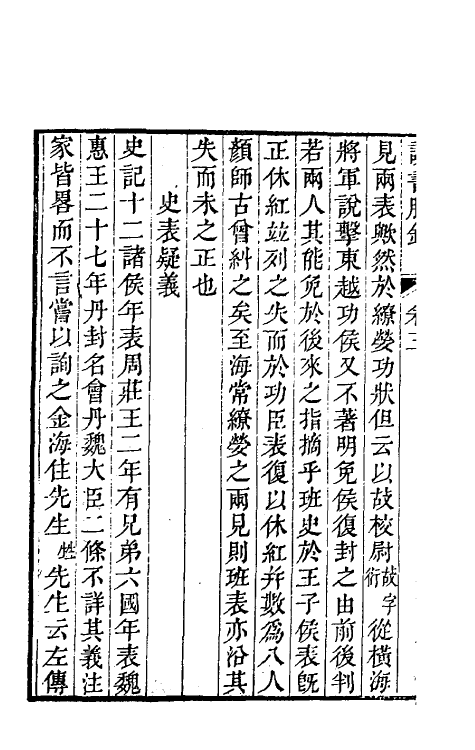 讀書脞錄 卷三
見兩表歟然於繚嫈功狀但云以故校尉故字衍從橫海
將軍說擊東越功侯又不著明免侯復封之由前後判
若兩人其能免於後來之指摘乎班史於王子侯表旣
正休紅竝列之失而於功臣表復以休紅幷數爲八人
顏師古曾糾之矣至海常繚嫈之兩見則班表亦沿其
失而未之正也
史表疑義
史記十二諸侯年表周莊王二年有兄弟六國年表魏
惠王二十七年丹封名會丹魏大臣二條不詳其義注
家皆畧而不言嘗以詢之金海住先生甡先生云左傳